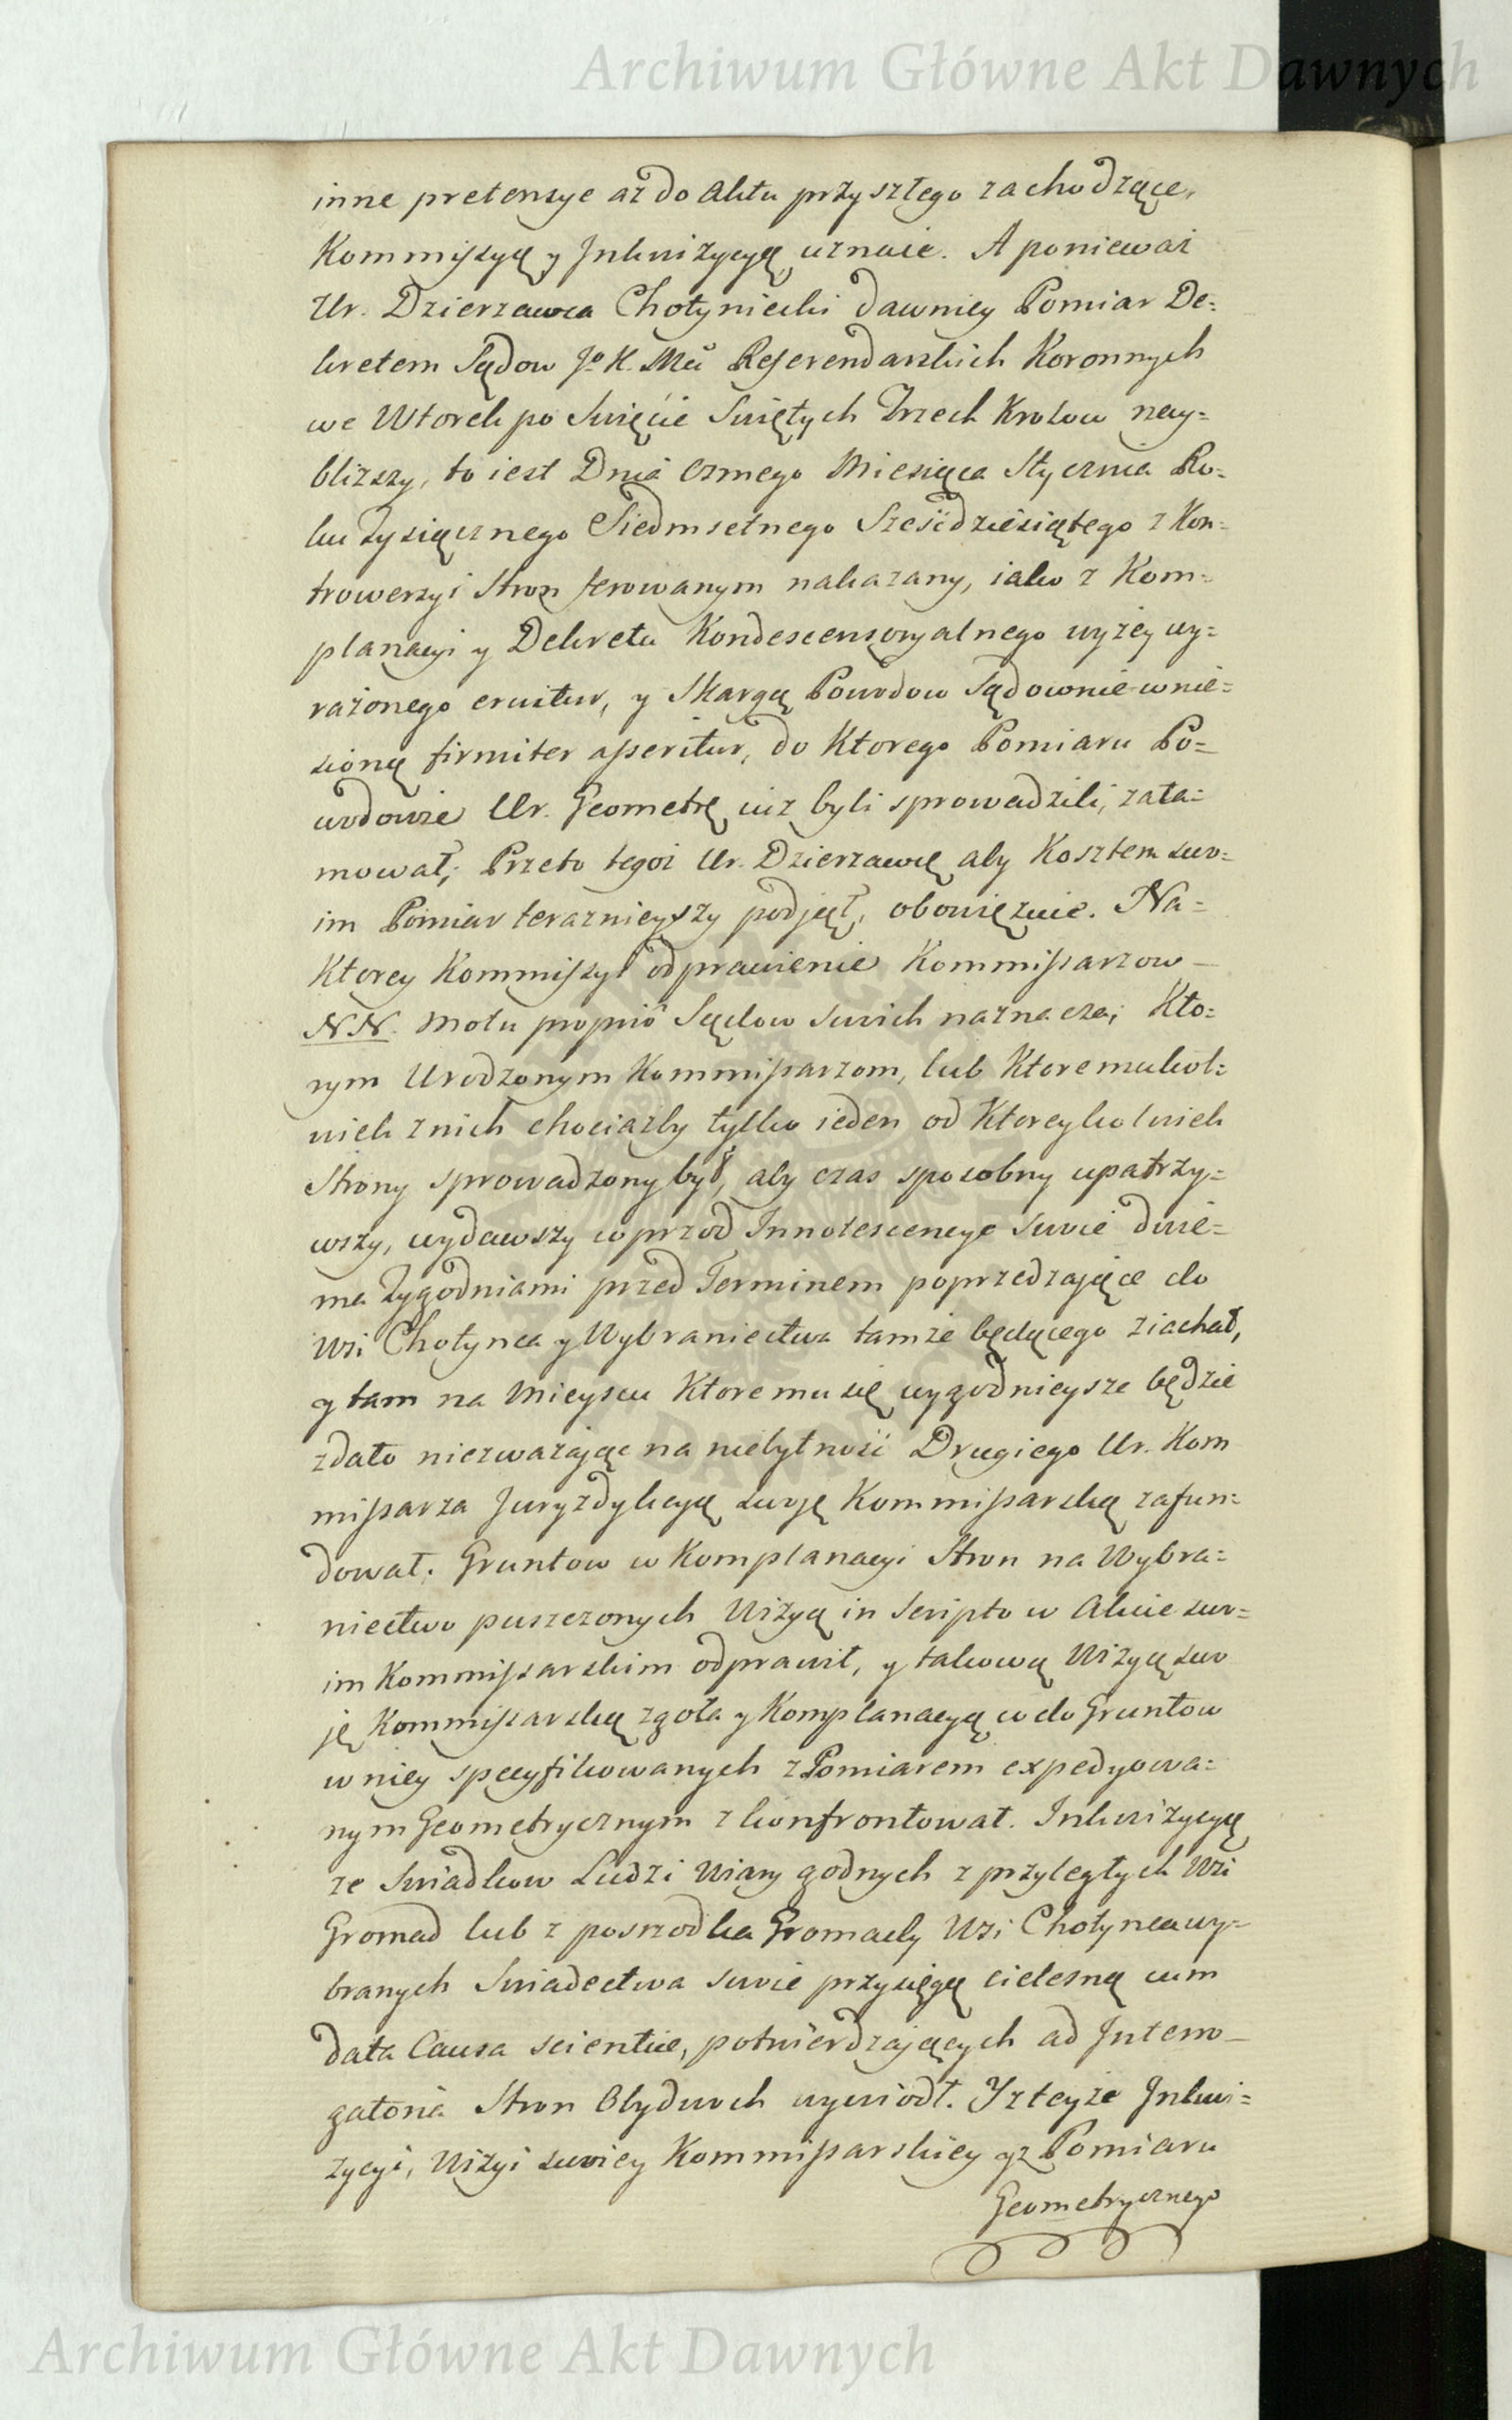 Archiwum Główne Akt Dawnych
inne pretensye aż do Aktu przyszłego zachodzące,
Kommissyą y Inkwizycyą uznaie. A ponieważ
Ur. Dzierzawca Chotyniecki dawniey Pomiar De=
kretem Sądow Jo K. Mci Referendarskich Koronnych
we Wtorek po Swięcie Swiętych Trzech Krolow nay=
bliższy, to iest Dnia osmego Miesiąca Stycznia Ro=
ku Tysiącznego Siedmsetnego Sześcdziesiątego z Kon=
trowersyi Stron ferowanym nakazany, iako z Kom=
planacyi y Dekretu Kondescensoryalnego wyżey wy=
rażonego eruitur, y Skargą Powodow Sądownie wnie=
sioną firmiter asseritur, do Ktorego Pomiaru Po=
wodowie Ur. Geometrę iuż byli sprowadzili, zata=
mował; Przeto tegoż Ur. Dzierzawcę aby Kosztem swo=
im Pomiar teraznieyszy podjął, obowiązuie. Na=
Ktorey Kommissyi odprawienie Kommissarzow
NN. motu proprio Sądow swoich naznacza; Kto=
rym Urodzonym Kommissarzom, lub Ktoremukol=
wiek z nich chociażby tylko ieden od Ktoreykolwiek
Strony sprowadzony był, aby czas sposobny upatrzy=
wszy, wydawszy wprzod Innotescencye swoie dwie=
ma Tygodniami przed Terminem poprzedzające do
Wsi Chotynca y Wybraniectwa tamże będącego ziachał,
y tam na Mieyscu Ktore mu się wygodnieysze będzie
zdało niezważając na niebytność Drugiego Ur. Kom
missarza Juryzdykcyą swoję Kommissarską zafun=
dował. Gruntow w Komplanacyi Stron na Wybra=
niectwo puszczonych Wizyą in Scripto w Akcie swo=
im Kommissarskim odprawił, y takową Wizyą swo
ję Kommissarską zgoła y Komplanacyą co do Gruntow
w niey specyfikowanych z Pomiarem expedyowa=
nym Geometrycznym zkonfrontował. Inkwizycyą
ze Swiadkow Ludzi Wiary godnych z przyległych Wsi
Gromad lub z poszrodka Gromady Wsi Chotynca wy=
branych Swiadectwa swoie przysięgą cielesną cum
data Causa scientiae, potwierdzających ad Interro=
gatoria Stron Obydwoch wywiodł. Y z teyże Inkwi=
zycyi, Wizyi swoiey Kommissarskiey y z Pomiaru
Geometrycznego
Archiwum Główne Akt Dawnych